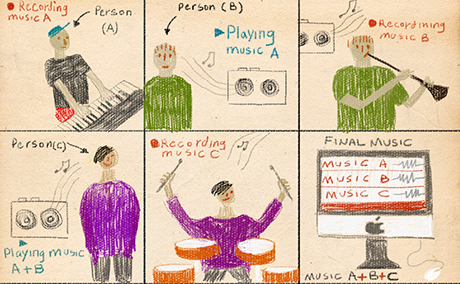 Recording
music A
Person
(A)
Person (B)
Playing
music A
Recordining
music B
Person(c)
Playing music
A+B
Recording
music C
FINAL MUSIC
MUSIC A
MUSIC B
MUSIC C
MUSIC A+B+C